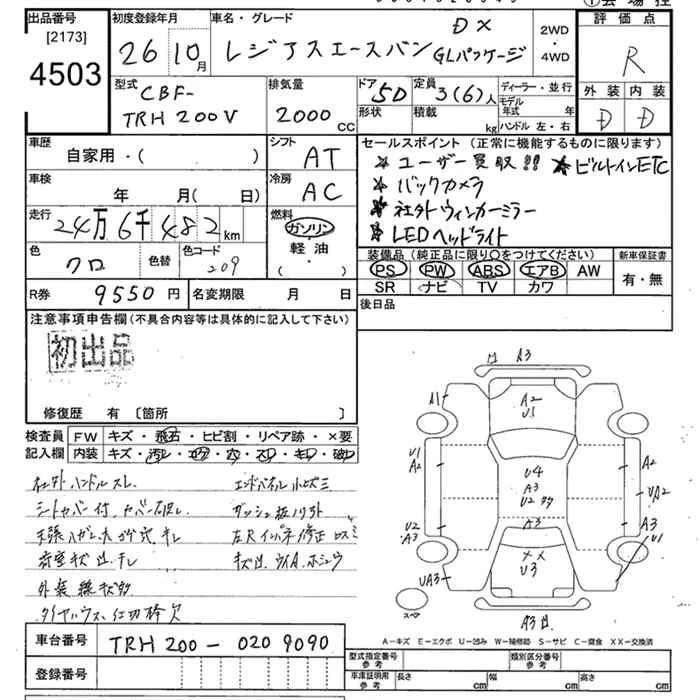 出品番号
[2173]
4503
初度登録年月
26 10月
車名・グレード
レジアスエースバン
DX
GLパッケージ
2WD
・
4WD
評価点
R
外装 内装
D D
型式
CBF-
TRH200V
排気量
2000
CC
ドア 5D
形状
定員 3(6)人
積載
kg
ディーラー・並行
モデル
年式 年
ハンドル 左・右
車歴
自家用・( )
シフト
AT
セールスポイント(正常に機能するものに限ります)
★ユーザー買取!! ★ビルトインETC
★バックカメラ
★社外ウィンカーミラー
★LEDヘッドライト
車検
年 月( 日)
冷房
AC
走行
24万6千482km
燃料
ガソリン
軽・油
( ・ )
色
クロ
色替
色コード
209
装備品(純正品に限り○をつけてください)
PS PW ABS エアB AW
SR ナビ TV カワ
新車保証書
有・無
R券 9550円
名変期限 月 日
後日品
注意事項申告欄(不具合内容等は具体的に記入して下さい)
初出品
修復歴 有〔箇所 〕
検査員
記入欄
FW キズ・飛石・ヒビ割・リペア跡・×要
内装 キズ・汚レ・コゲ・穴・スレ・キレ・破レ
社外ハンドルスレ
シートカバー付
ダッシュ板ノリ外
外装線キズ多
A3
A1
A2
U1
U1
A2
U4
A3
U2
A2
UA2
U2
A3
A3
A3
U1
UA3
××
U3
A3
スペア
A-キズ E-エクボ U-凹み W-補修跡 S-サビ C-腐食 XX-交換済
車台番号
TRH200-0209090
登録番号
型式指定番号
参考
類別区分番号
参考
車庫証明用
参考
長さ cm
幅 cm
高さ cm